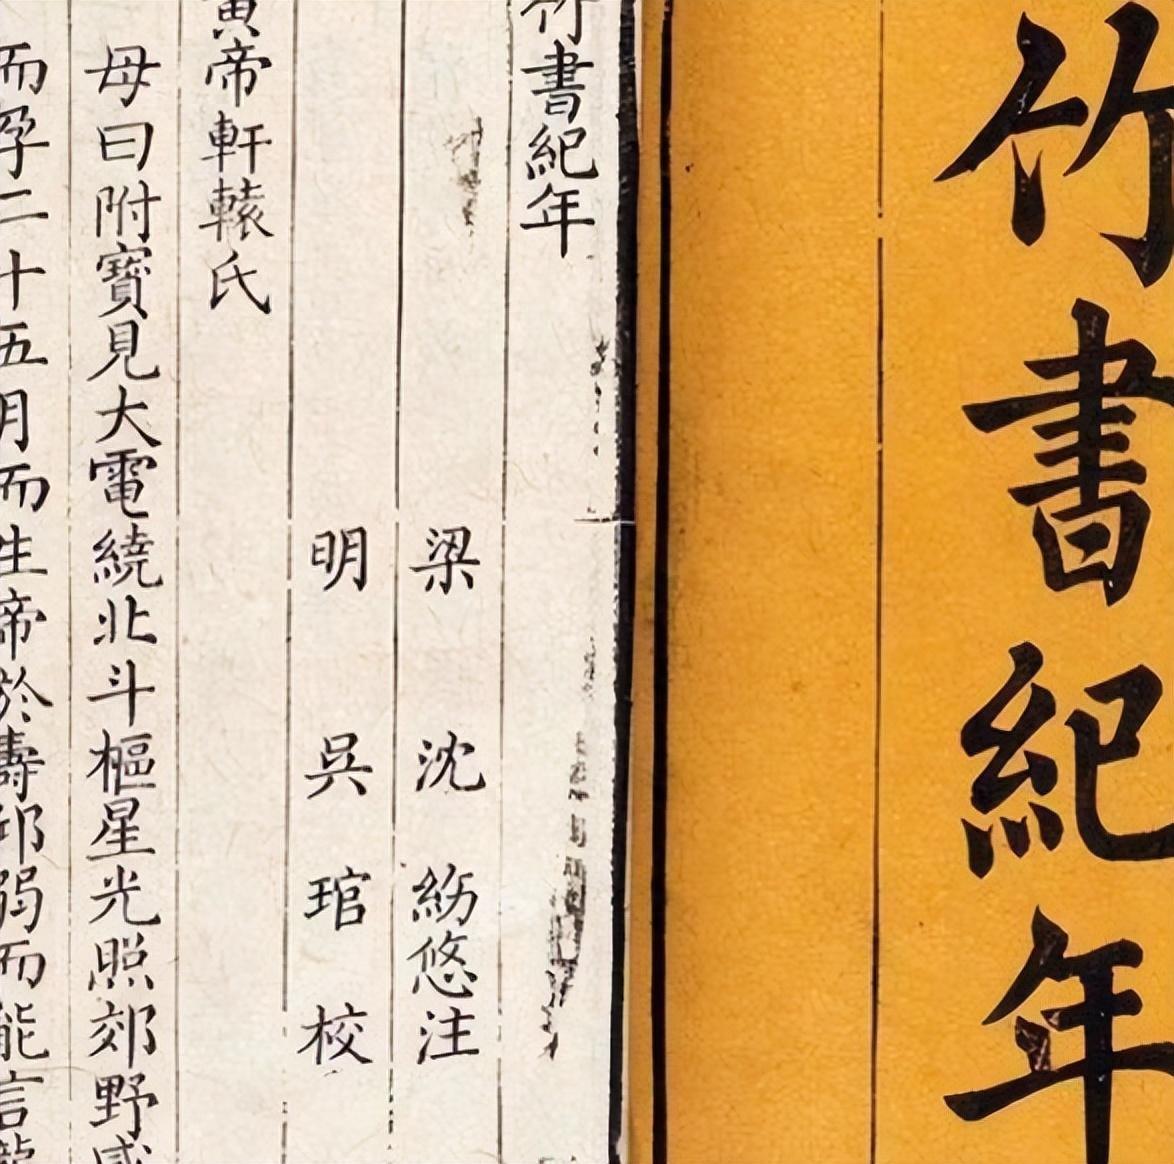 竹書紀年
竹書紀年
梁 沈 約悠注
明 吳 琯 校
黃帝軒轅氏
母曰附寶見大電繞北斗樞星光照郊野感
而孕二十五月而生帝於壽邱弱而能言龍